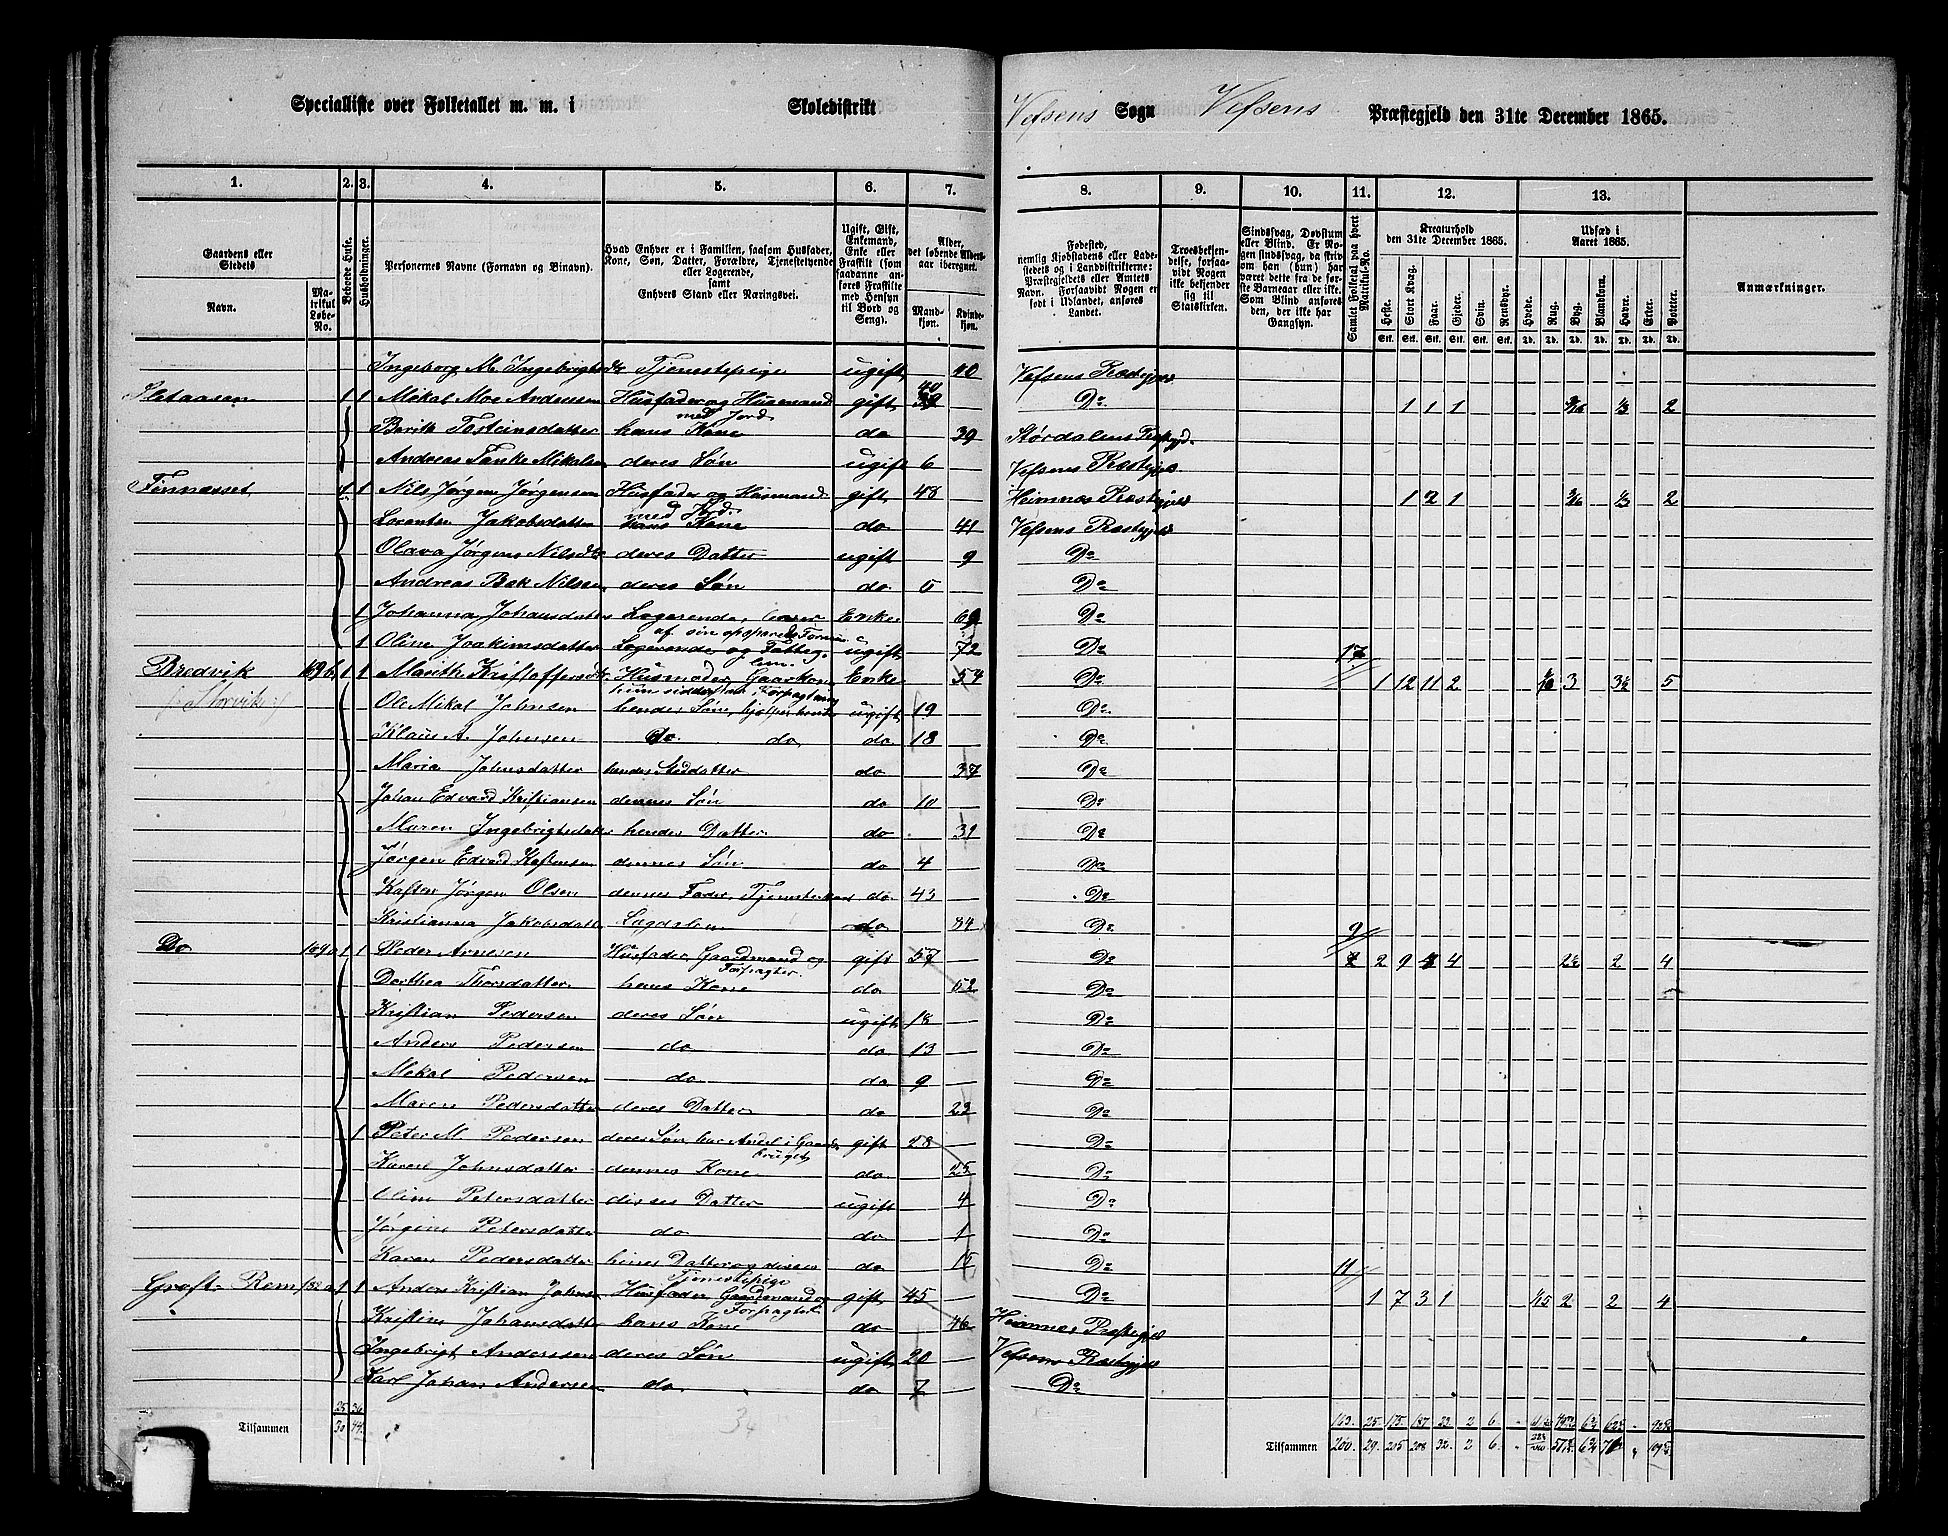 Specialliste over Folketallet m. m. i Skoledistrikt Vefsens Sogn Vefsens Præstegjeld den 31te December 1865.
1. 2. 3. 4. 5. 6. 7. 8. 9. 10. 11. 12. 13.
Gaardens eller Stedets
Navn.
Matrikul Løbe-No.
Beboede Huse.
Husholdninger.
Personernes Navne (Fornavn og Binavn).
Hvad Enhver er i Familien, saasom Husfader, Kone, Søn, Datter, Forældre, Tjenestetyende eller Logerende, samt Enhvers Stand eller Næringsvei.
Ugift, Gift, Enkemand, Enke eller Fraskilt (som saadanne anføres Fraskilte med Hensyn til Bord og Seng).
Alder, det løbende Alders-aar iberegnet.
Mandkjøn. Kvindekjøn.
Fødested, nemlig Kjøbstadens eller Ladestedets og i Landdistrikterne: Præstegjeldets eller Amtets Navn. Forsaavidt Nogen er født i Udlandet, anføres Landet.
Troesbekjendelse, forsaavidt Nogen ikke bekjender sig til Statskirken.
Sindssvag, Døvstum eller Blind. Er Nogen sindssvag, da skrives om han (hun) har været dette fra de første Barneaar eller ikke. Som Blind anføres den, der ikke har Gangsyn.
Samlet Folketal paa hvert Matrikul-No.
Kreaturhold den 31te December 1865.
Heste. Stort Kvæg. Faar. Gjeder. Svin. Rensdyr.
Udsæd i Aaret 1865.
Hvede. Rug. Byg. Blandkorn. Havre. Erter. Poteter.
Anmærkninger.
Ingeborg M. Ingebrigtsdtr Tjenestepige ugift 40 Vefsens Præstegjel
Sletaasen 1 1 Mikal Moe Andersen Husfader og Husmand med Jord gift 40 Do 1 1 1 3/16 1/3 2
Berith Tosteinsdatter hans Kone do 39 Størdalens Prestgjd.
Andreas Tanke Mikalsen deres Søn ugift 6 Vefsens Præstegjel
Finnæsset 1 1 Nils Jørgen Jørgensen Husfader og Husmand med Jord. gift 48 Hemnæs Præstegjeld 1 2 1 3/16 1/3 2
Lorentse Jakobsdatter hans Kone do 41 Vefsens Præstegjel
Olava Jørgine Nilsdtr deres Datter ugift 9 Do
Andreas Bek Nilsen deres Søn do 5 Do
1 Johanna Johansdatter Logerende, lever af sin opsparede Formue Enke 69 Do
1 Oline Joakimsdatter Logerende og Fatteglem. ugift 72 Do 17
Bredvik 189b 1 1 Marith Kristoffersdtr Husmoder, Gaardkone Enke 54 Do 1 12 11 2 1/8 3 3½ 5
(Storvik) Ole Mikal Johnsen hendes Søn, hjelper hende ugift 19 Do
Klaus A. Johnsen do do do 18 Do
Maria Johnsdatter hendes Steddatter do 37 Do
Johan Edvard Kristiansen dennes Søn do 10 Do
Maren Ingebrigtsdatter hendes Datter do 31 Do
Jørgen Edvard Kastensen dennes Søn do 4 Do
Kasten Jørgen Olsen dennes Fader, Tjenstekarl do 43 Do
Kristianna Jakobsdatter Lægdslem do 84 Do 9
Do 189a 1 1 Peder Arnesen Husfader, Gaardmand og Forpagter gift 57 Do 2 9 4 2½ 2 4
Dorthea Thorsdatter hans Kone do 52 Do
Kristian Pedersen deres Søn ugift 18 Do
Anders Pedersen do do 13 Do
Mikal Pedersen do do 9 Do
Maren Pedersdatter deres Datter do 23 Do
1 Peter M. Pedersen deres Søn, har Andel i Gaardsbruget gift 28 Do
Karen Johnsdatter dennes Kone do 25 Do
Oline Petersdatter disses Datter ugift 4 Do
Jørgine Petersdatter do do 1 Do
Karen Pedersdatter hines Datter og disses Tjenestepige do 15 Do 11
Grøft-Rem 1 1 Anders Kristian Johnsen Husfader, Gaardmand og Forpagter gift 45 Do 1 7 3 1 1/15 2 2 4
Kristine Johansdatter hans Kone do 46 Hemnæs Præstegjel
Ingebrigt Andersen deres Søn ugift 20 Vefsens Præstegjeld
Karl Johan Andersen do do 7 Do
25 36
Tilsammen 30 44.
34
163. 25. 175. 187. 23. 2 6.
Tilsammen 200. 29. 205 208 32. 2 6.